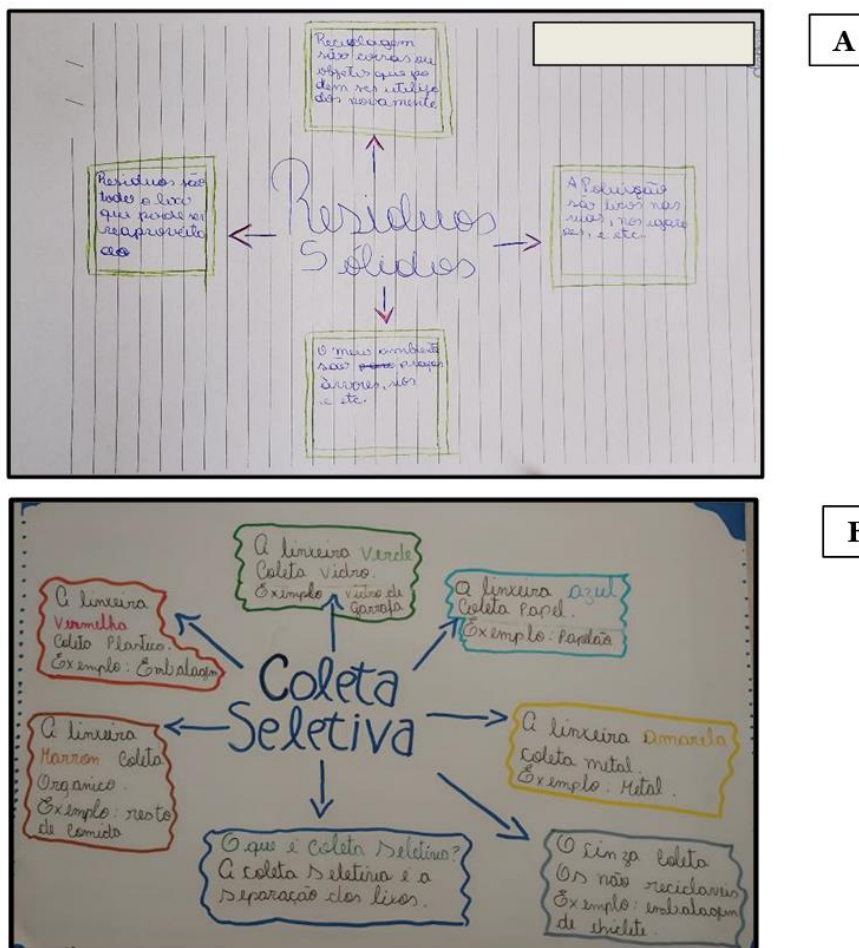 A
Reciclagem
são coisas ou
objetos que po
dem ser utiliza
dos novamente
Residuos são
todo o lixo
que pode ser
reaproveita
do
Residuos
Sólidos
A Poluição
são lixos nas
ruas, nos igara
pes, e etc.
O meio ambiente
são praças
árvores, rios
e etc.
B
A linxeira Verde
Coleta Vidro.
Exemplo vidro de
Garrafa
A linxeira
Vermelha
Coleta Plastico.
Exemplo: Embalagem
A linxeira azul
Coleta Papel.
Exemplo: Papelão
Coleta
Seletiva
A linxeira
Marron Coleta
Organico.
Exemplo: resto
de comida
A linxeira amarela
coleta metal.
Exemplo: Metal.
O que é coleta seletiva?
A coleta seletiva é a
separação dos lixos.
O cinza coleta
Os não reciclaveis
Exemplo: embalagem
de chiclete.